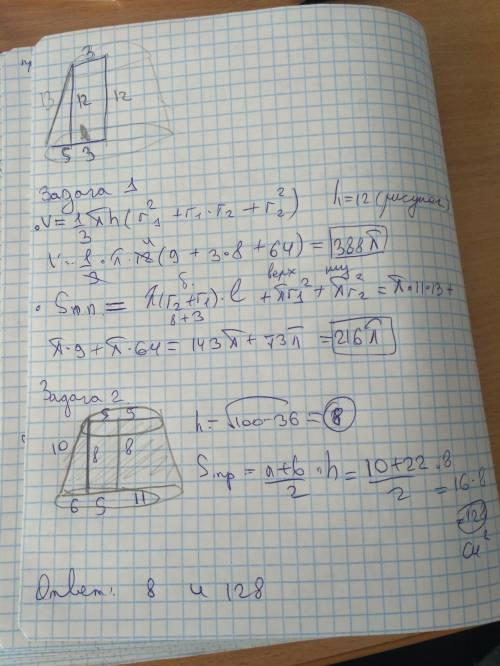 3
13 12 12
5 3
Задача 1
V = 1/3 πh(r₁² + r₁·r₂ + r₂²) h=12 (рисунок)
V = 1/3 · π · 12 (9 + 3·8 + 64) = 388π
Sпп = π(r₂+r₁)·l + πr₁² + πr₂² = π·11·13 +
8+3
π·9 + π·64 = 143π + 73π = 216π
Задача 2
5 5
10 8 8
6 5 11
h = √100-36 = 8
Sтр = a+b/2 · h = 10+22/2 · 8 = 16·8
= 128
см²
Ответ: 8 и 128